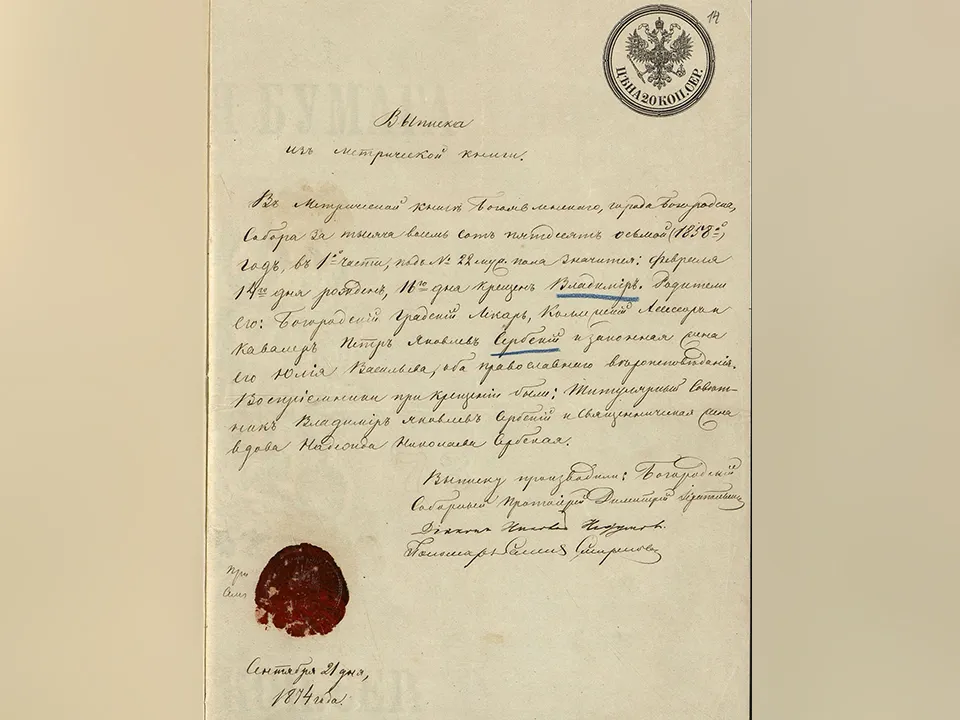 14
ЦѢНА 20 КОП. СЕР.
Выписка
изъ метрической книги.
Въ Метрической книгѣ Богоявленскаго, города Богородска,
Собора за тысяча восемь сотъ пятдесятъ осьмой (1858й)
годъ, въ 1й части, подъ № 22 мужеска пола значится: февраля
14го дня рожденъ, 16го дня крещенъ Владиміръ. Родители
его: Богородскій Градскій Лѣкарь, Коллежскій Ассесоръ и
Кавалеръ Петръ Яковлевъ Сербскій и законная жена
его Юлія Васильева, оба православнаго вѣроисповѣданія.
Воспріемники при крещеніи были: Титулярный Совѣт-
никъ Владиміръ Яковлевъ Сербскій и Священническая жена
вдова Надежда Николаева Сербская.
Выписку производили: Богородскій
Соборный Протоіерей Димитрій
Діаконъ
Пономарь Смирновъ
При
Сентября 21 дня,
1874 года.